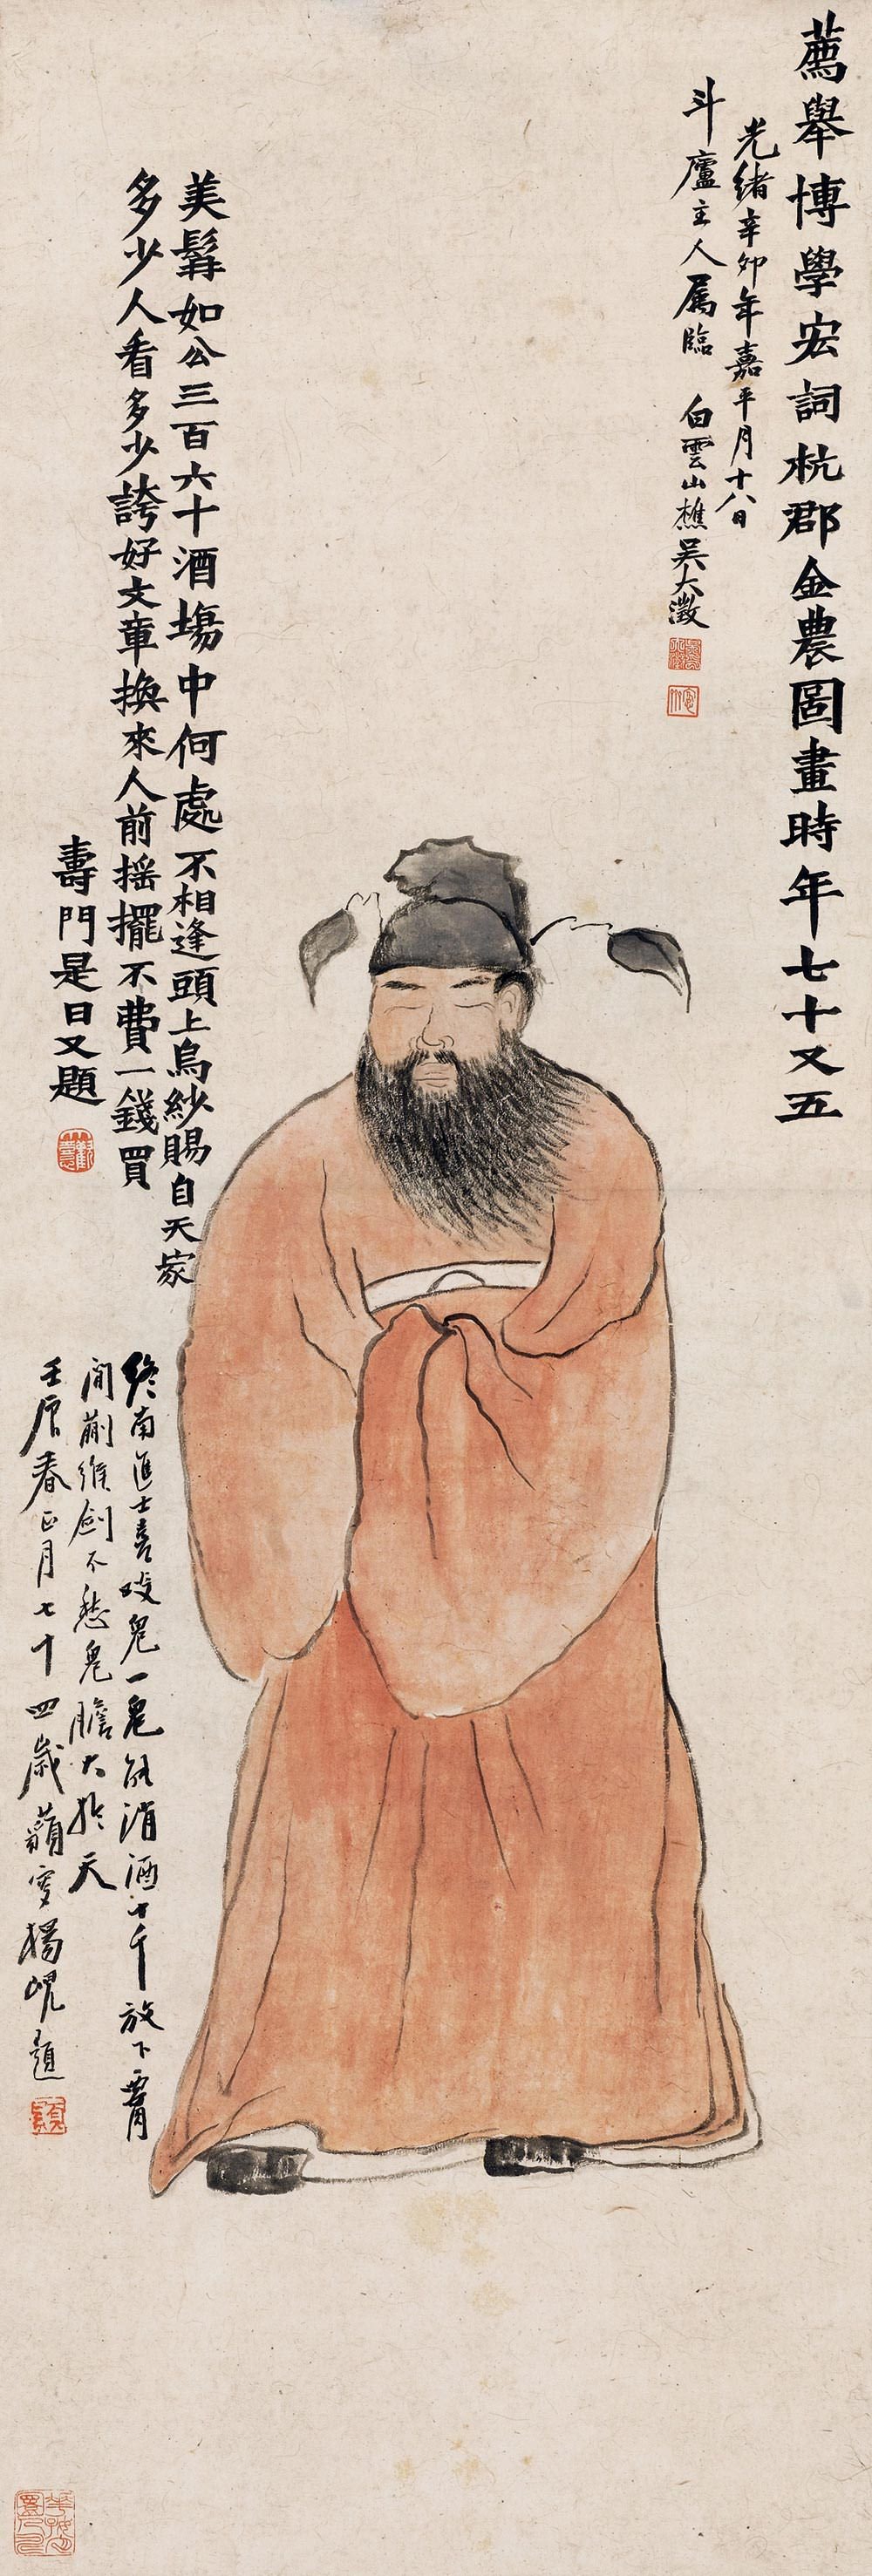 薦舉博學宏詞杭郡金農圖畫時年七十又五
光緒辛卯年嘉平月十八日
斗廬主人屬臨 白雲山樵吳大澂
美髯如公三百六十酒塲中何處不相逢頭上烏紗賜自天家
多少人看多少誇好文章換來人前搖擺不費一錢買
壽門是日又題
終南進士喜啖鬼一鬼能消酒十千放下霄
間蒯緱劍不愁鬼膽大於天
壬辰春正月七十四歲藐叟楊峴題